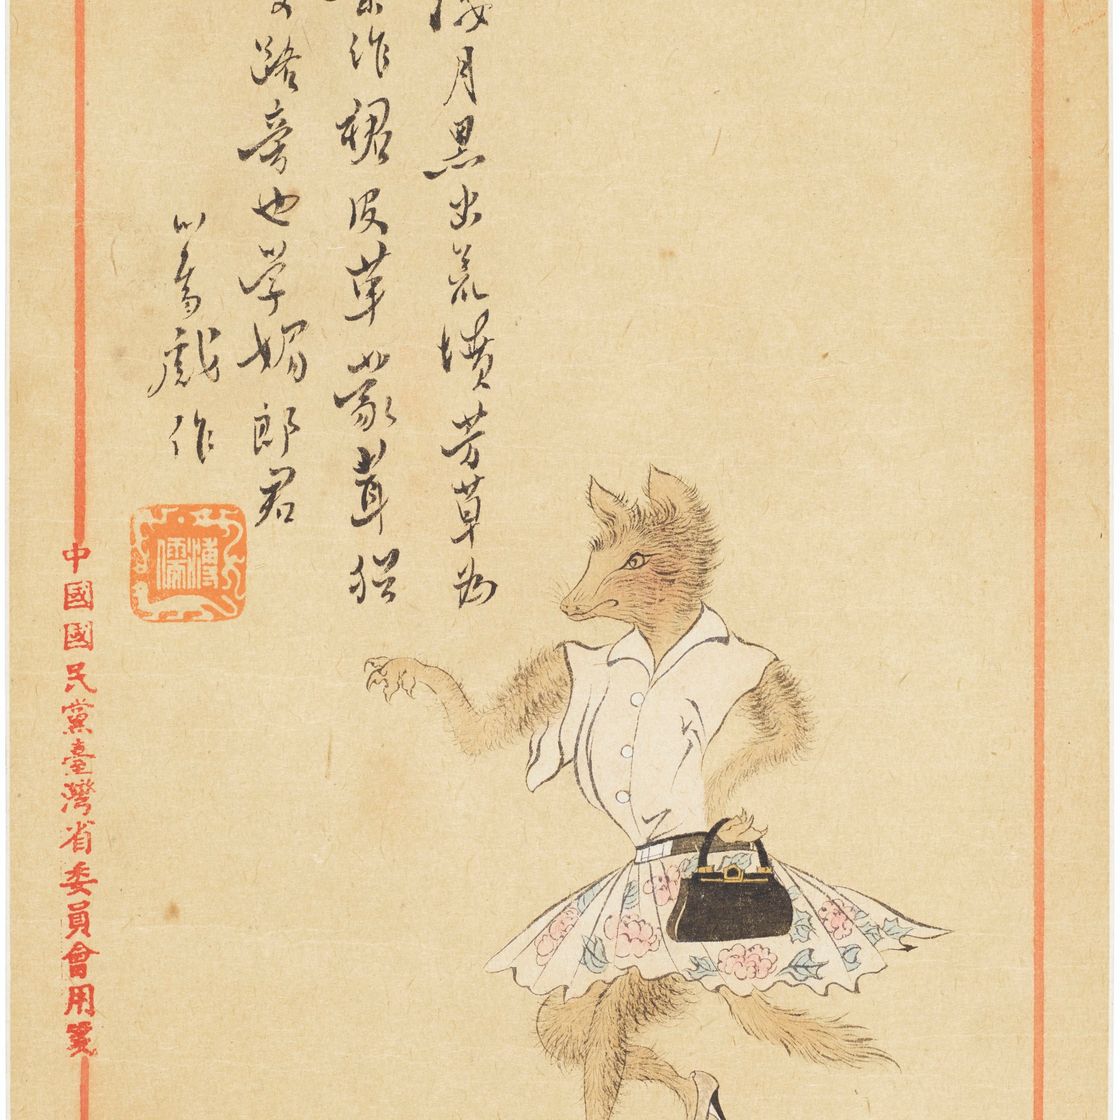 月黑出荒墳芳草為
作裙皮革蒙茸猶
路旁也学媚郎君
心畬戲作
溥儒
中國國民黨臺灣省委員會用箋